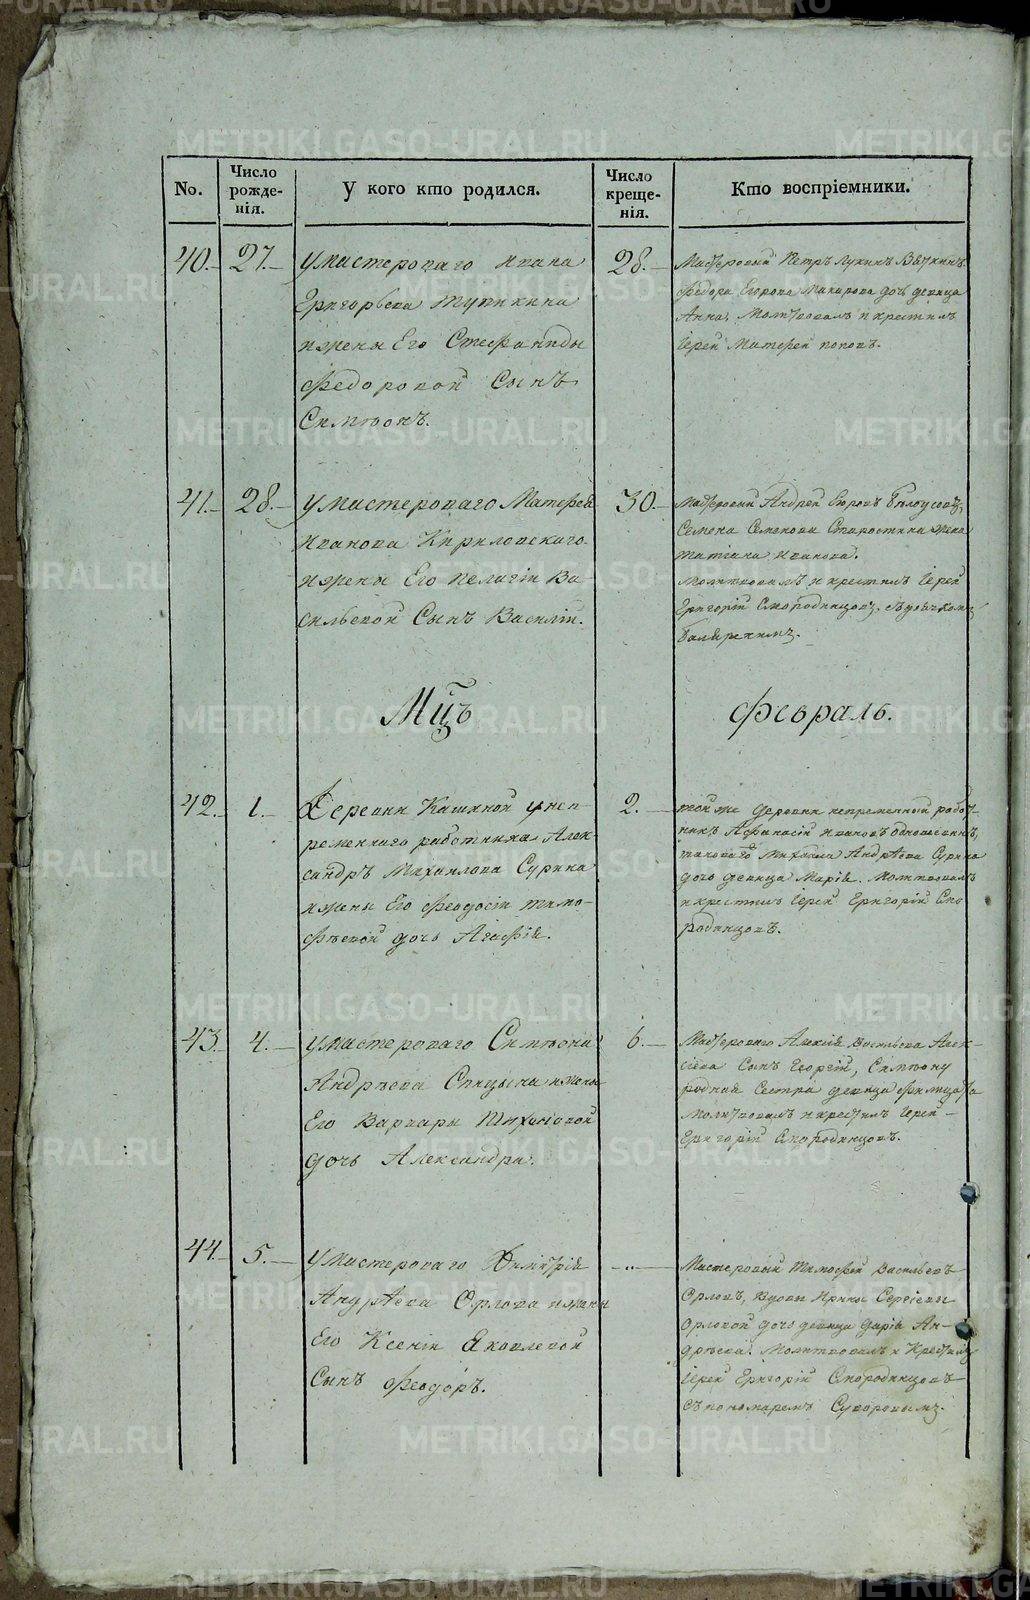 No.
Число рожде-нія.
У кого кто родился.
Число креще-нія.
Кто воспріемники.
40.
27.
у мастероваго Ивана
Григорьева Тупикина
и жены Его Стефаниды
Федоровой Сынъ
Симеонъ.
28.
Мастеровый Петръ Лукинъ Вяткинъ
Федора Егорова Макарова дочь девица
Анна. Молитвовалъ и крестилъ
Іерей Матфей Поповъ.
41.
28.
у мастероваго Матфея
Иванова Кириловскаго
и жены Его Пелагіи Ва-
сильевой Сынъ Василій.
30.
Мастеровый Андрей Бѣлоусовъ,
Семена Семенова Старостина жена
Татіана Иванова.
Молитвовалъ и крестилъ Іерей
Григорій Смородинцовъ, съ дьячкомъ
Мцъ
Февраль.
42.
1.
Деревни Кашиной у неп-
ременнаго работника Алек-
сандръ Михаилова Сурина
и жены Его Феодосіи Тимо-
фѣевой дочь Агафія.
2.
той же деревни непременный работ-
никъ Афанасій Ивановъ
таковаго Михаила Андрѣева Сурина
дочь девица Марія. Молитвовалъ
и крестилъ Іерей Григорій Смо
родинцовъ.
43.
4.
у мастероваго Симеона
Андрѣева Спицына и жены
Его Варвары Тихоновой
дочь Александра.
6.
Мастероваго Алексія Васильева Алек-
сіева Сынъ Георгій, Симеону
родная Сестра девица Филицата
Молитвовалъ и крестилъ Іерей
Григорій Смородинцовъ.
44.
5.
у мастероваго Димитрія
Андрѣева Орлова и жены
Его Ксеніи Яковлевой
Сынъ Феодоръ.
Мастеровый Тимофей Васильевъ
Орловъ, Вдовы Ирины Сергіевы
Орловой дочь девица Дарія Ан-
дрѣева. Молитвовалъ и Крестилъ
Іерей Григорій Смородинцовъ
съ пономаремъ Суворовымъ.
METRIKI.GASO-URAL.RU